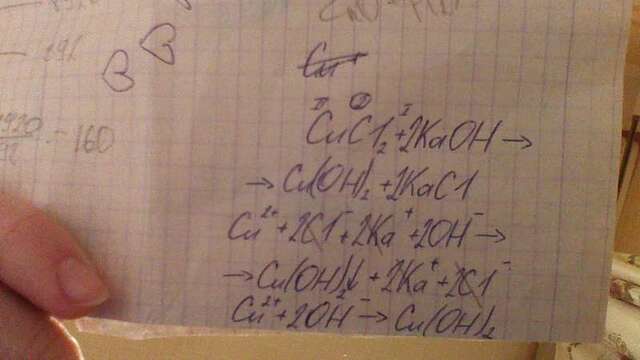 196
= 160
CuCl₂ + 2KaOH →
→ Cu(OH)₂ + 2KaCl
Cu²⁺ + 2Cl⁻ + 2Ka⁺ + 2OH⁻ →
→ Cu(OH)₂↓ + 2Ka⁺ + 2Cl⁻
Cu²⁺ + 2OH⁻ → Cu(OH)₂